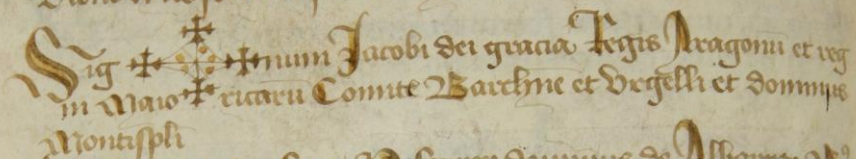 Sig num Jacobi dei gracia Regis Aragonum et reg
ni Maio ricarum Comite Barchne et Urgelli et dominus
Montispli
dominus de